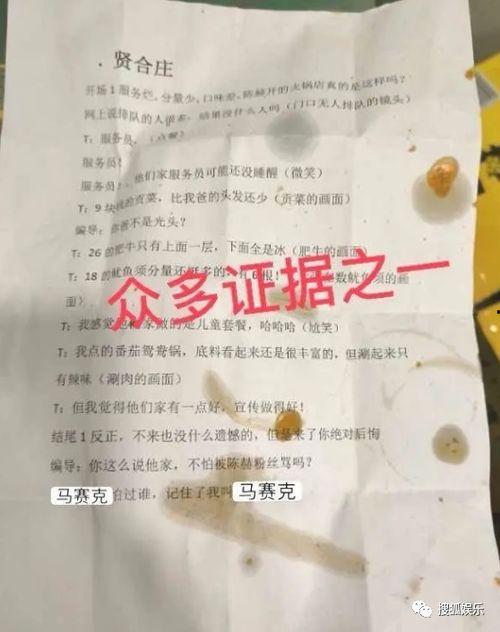 . 贤合庄
开场 1 服务烂，分量少，口味差，陈赫开的火锅店真的是这样吗？
网上说排队的人很多，结果没什么人吗（门口无人排队的镜头）
T：服务员，（点餐）
服务员！
服务员！，他们家服务员可能还没睡醒（微笑）
T：9 块钱的贡菜，比我爸的头发还少（贡菜的画面）
编导：你爸不是光头？
T：26 的肥牛只有上面一层，下面全是冰（肥牛的画面）
T：18 的鱿鱼须分量还挺多的，有 6 根！数鱿鱼须的画
面）
众多证据之一
T：我感觉他们家做的是儿童套餐，哈哈哈（尬笑）
T：我点的番茄鸳鸯锅，底料看起来还是很丰富的，但涮起来只
有辣味（涮肉的画面）
T：但我觉得他们家有一点好，宣传做得好！
结尾 1 反正，不来也没什么遗憾的，但是来了你绝对后悔
编导：你这么说他家，不怕被陈赫粉丝骂吗？
马赛克怕过谁，记住了我叫马赛克
搜狐娱乐